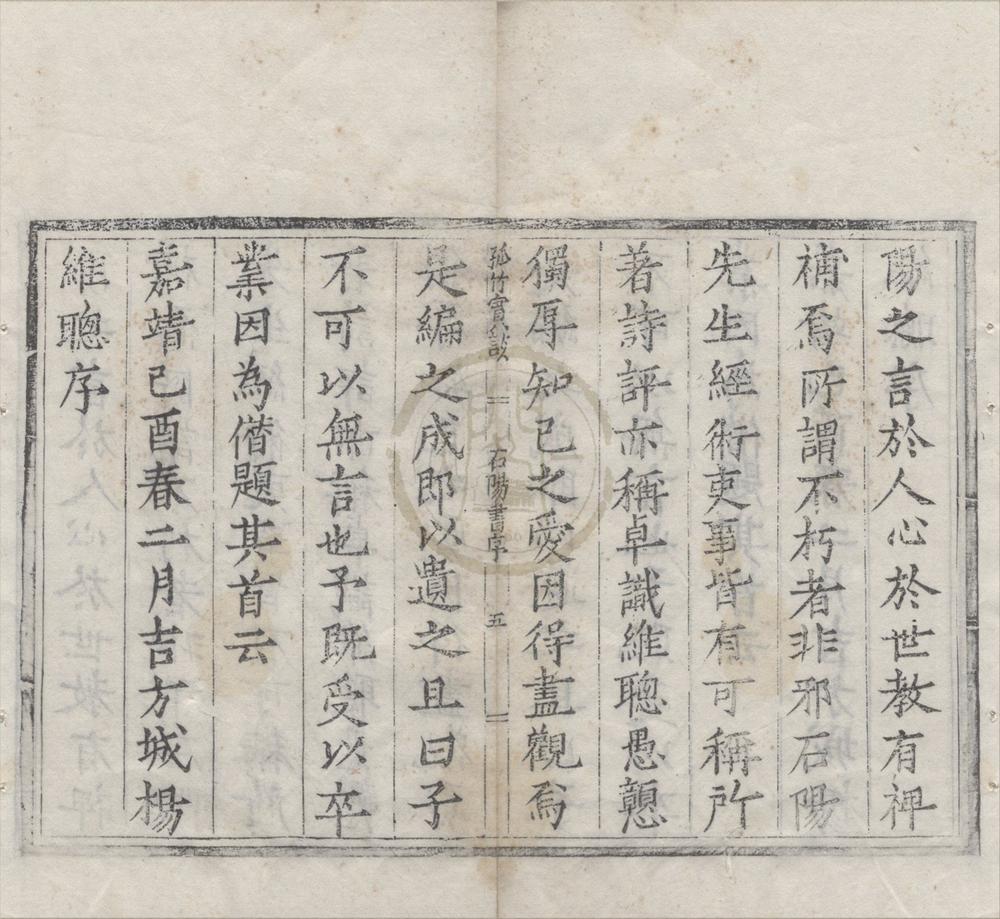 陽之言於人心於世教有裨
補焉所謂不朽者非邪石陽
先生經術吏事皆有可稱所
著詩評亦稱卓識維聰愚戇
獨厚知己之愛因得盡觀焉
孤竹賓談 石陽書序 五
是編之成即以遺之且曰子
不可以無言也予既受以卒
業因為僣題其首云
嘉靖己酉春二月吉方城楊
維聰序